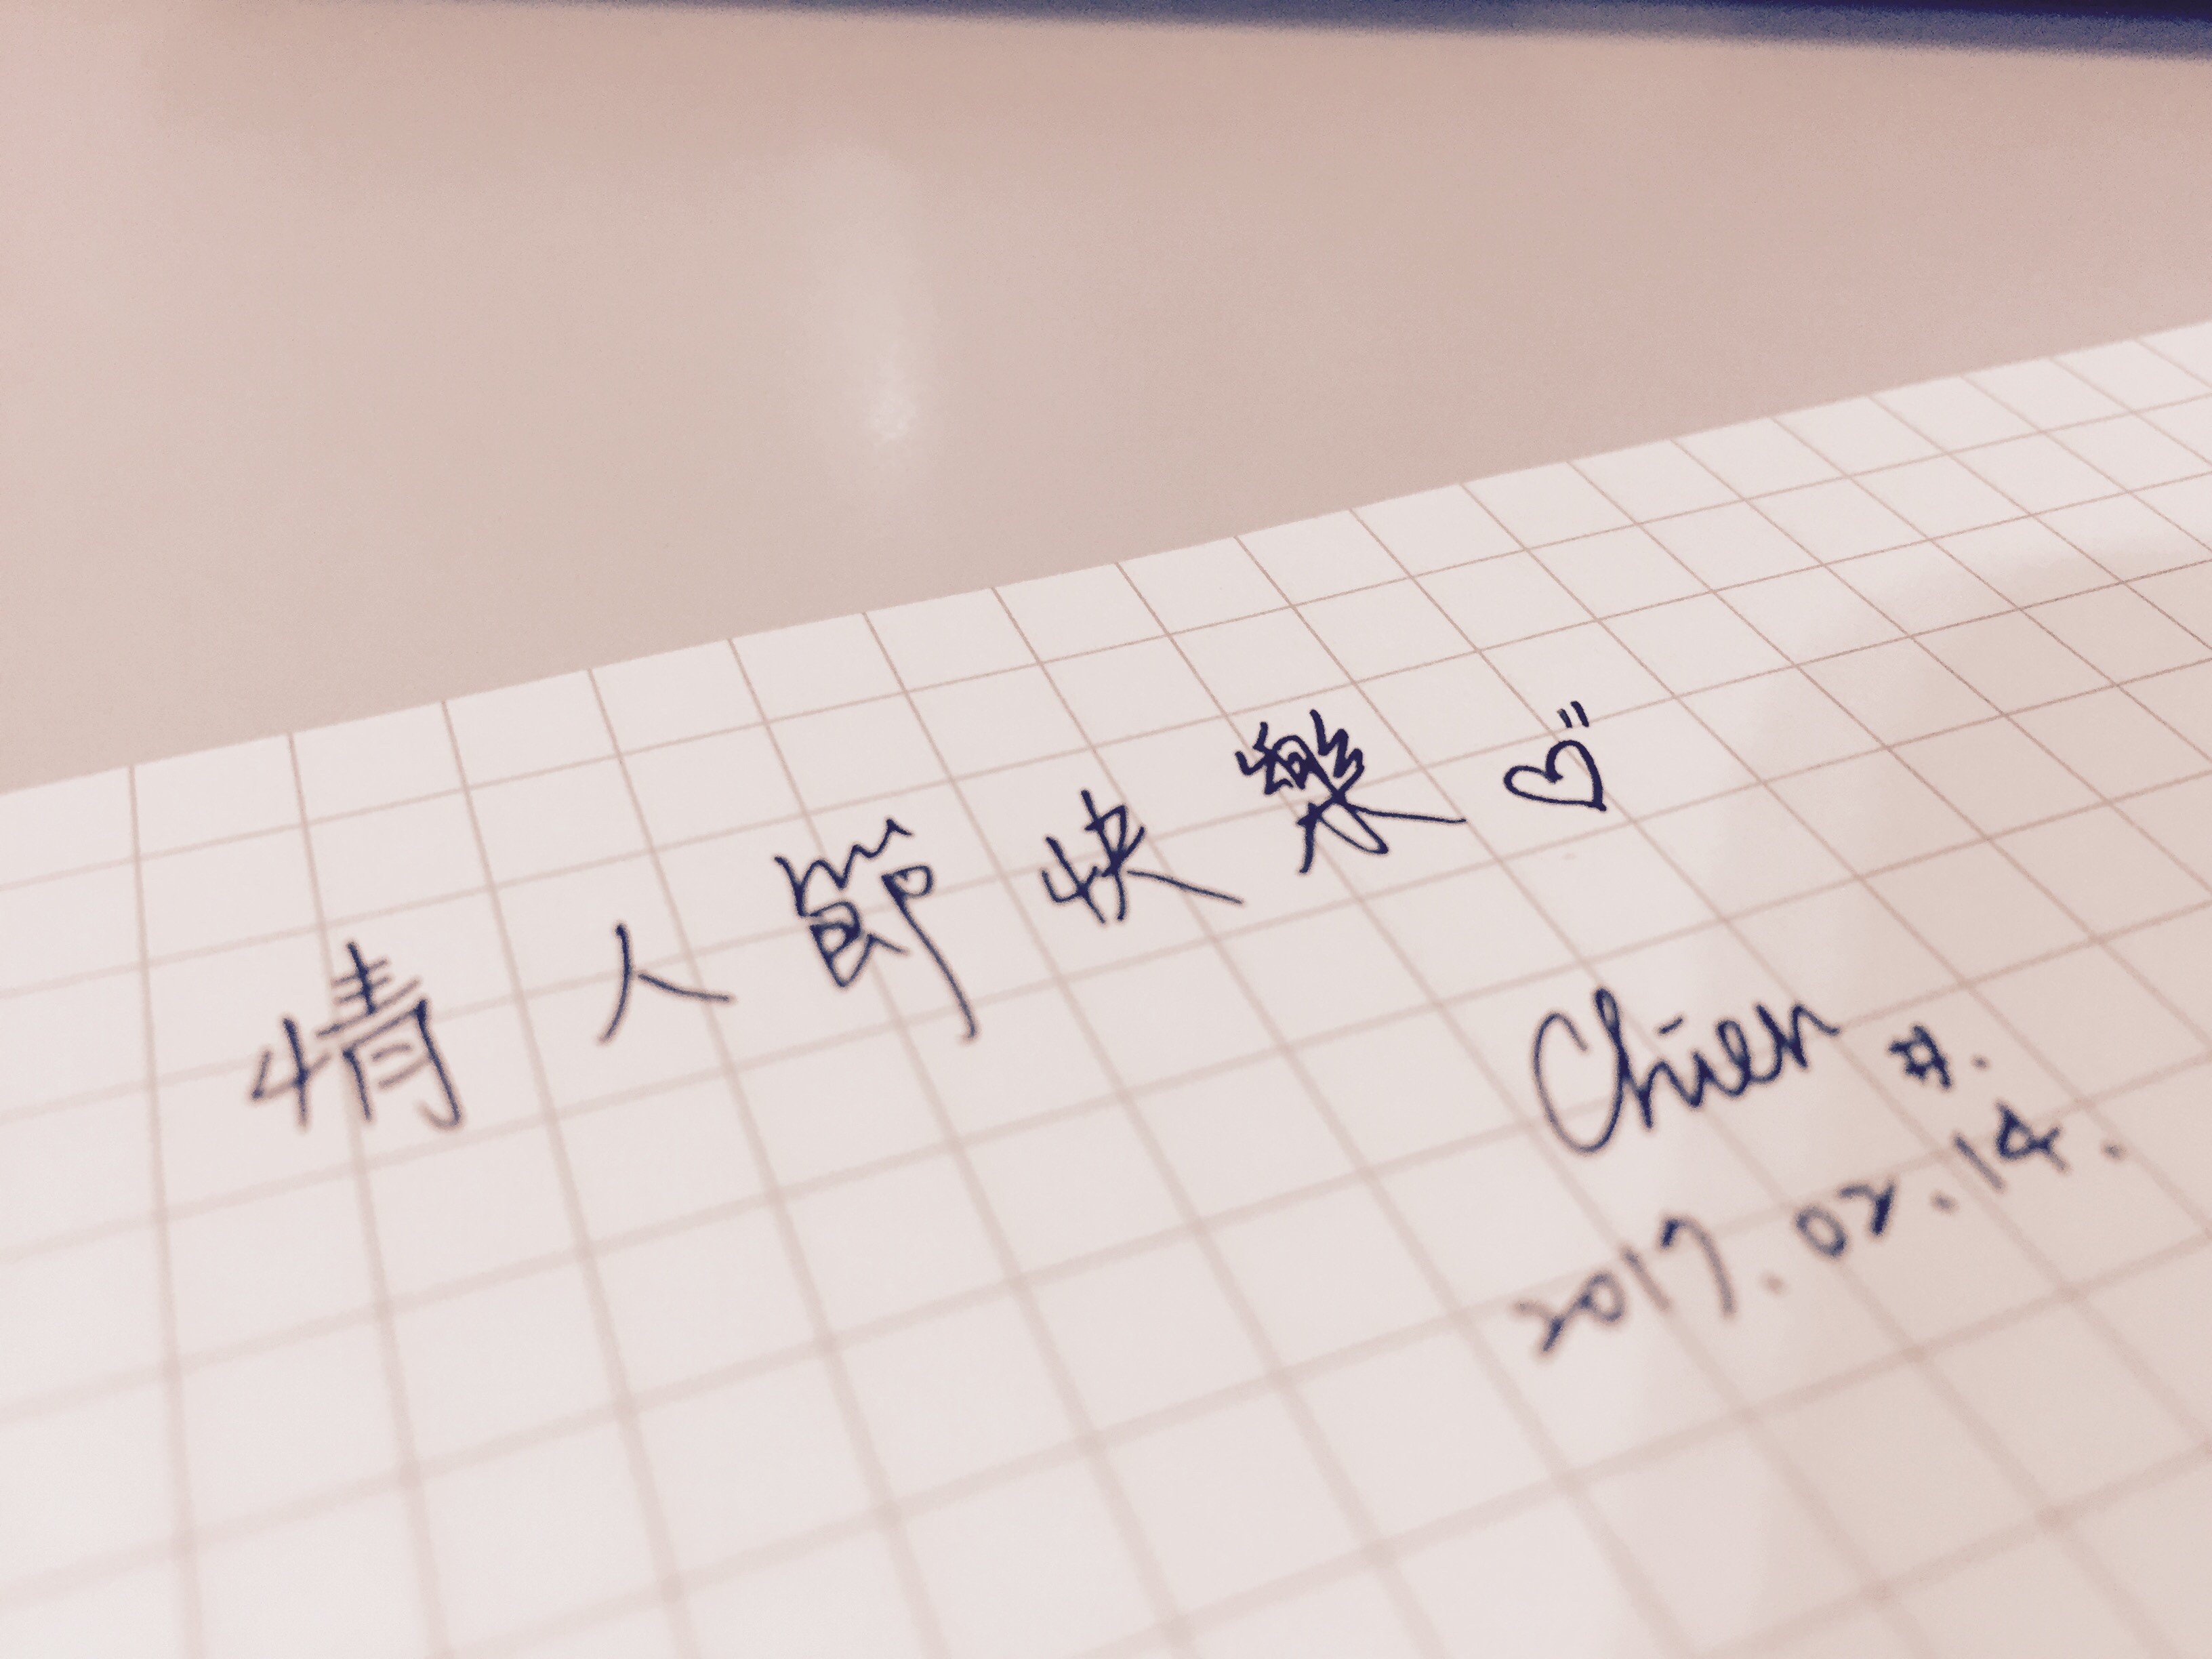 情人節快樂♡"
Chien #.
2017.02.14.